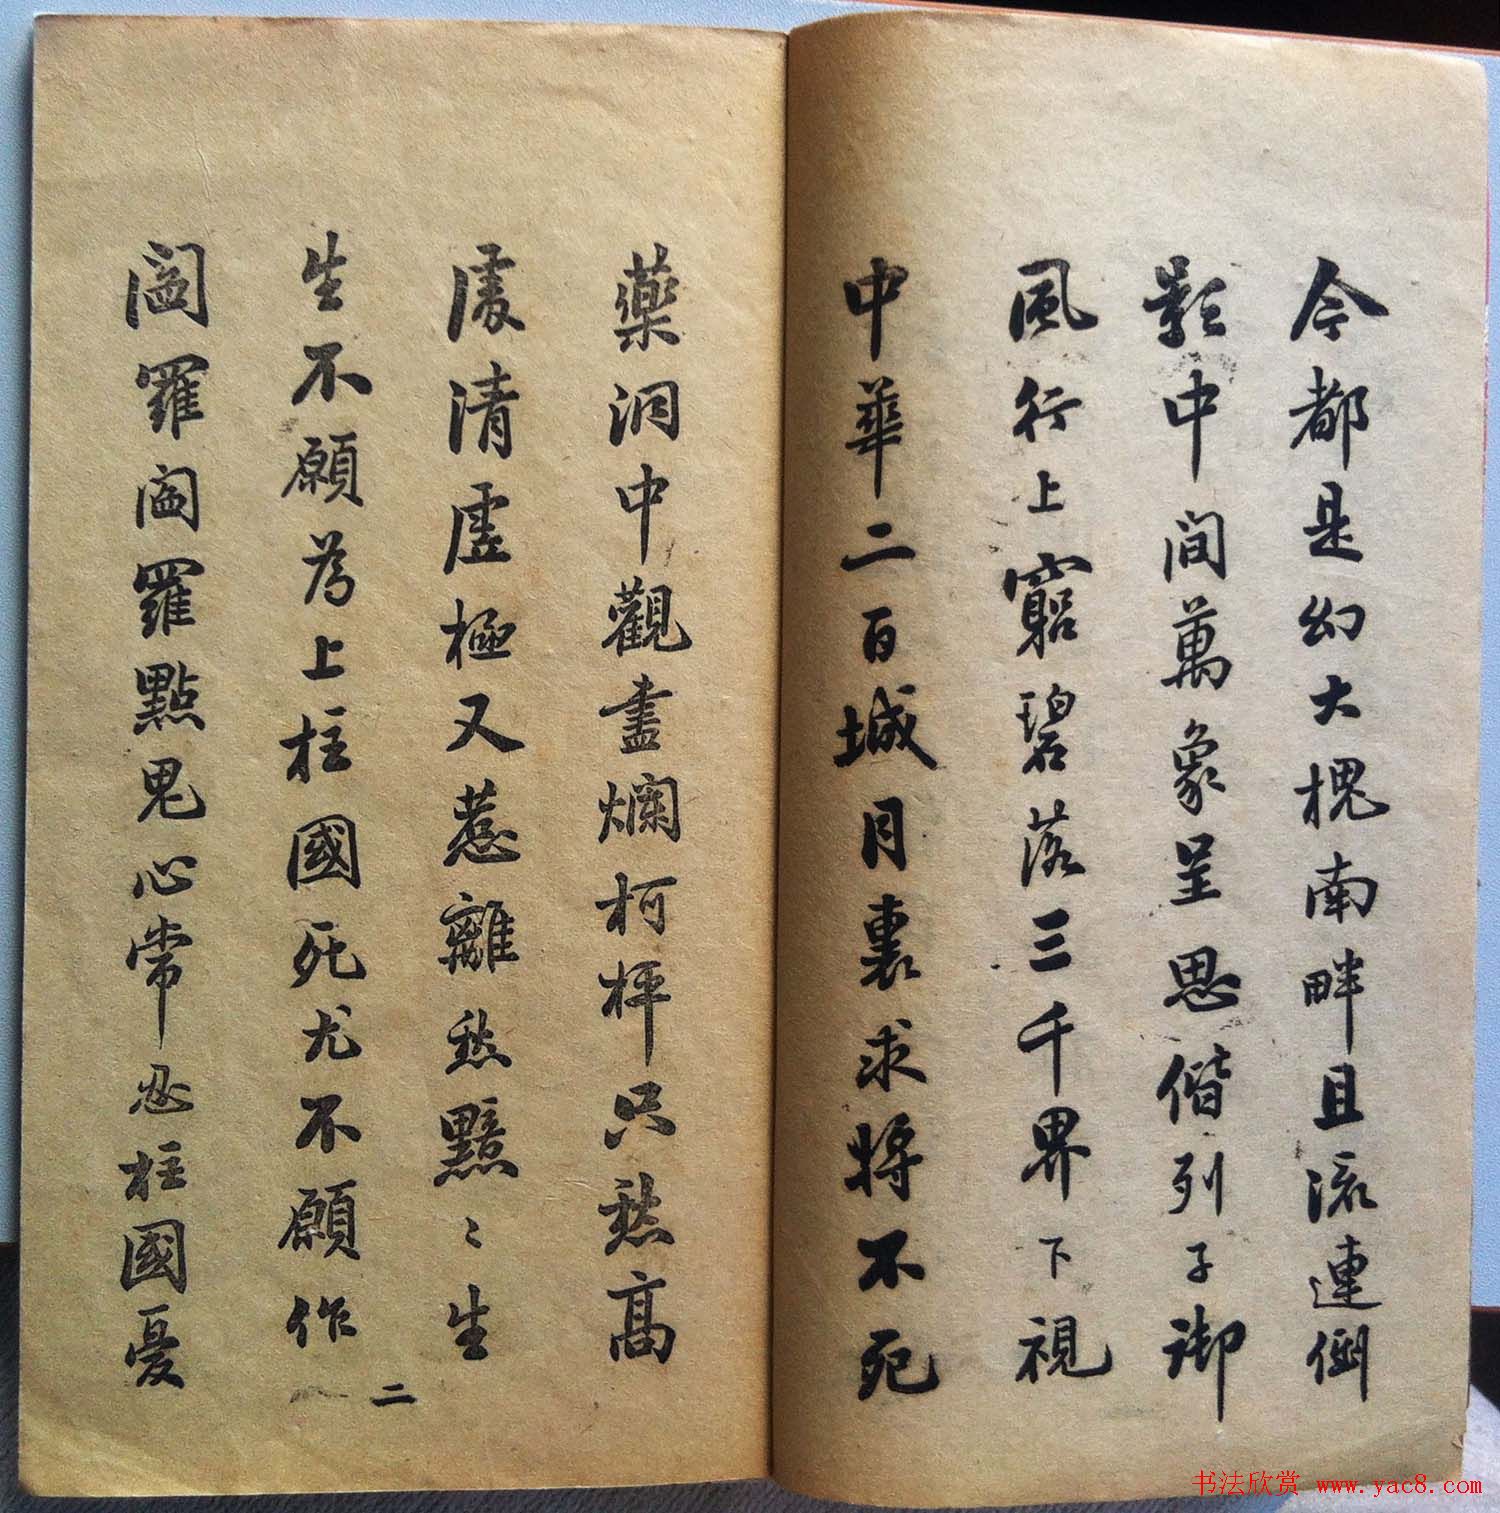 今都是幻大槐南畔且流連倒
影中間萬象呈思偕列子御
風行上窮碧落三千界下視
中華二百城月裏求將不死
藥洞中觀盡爛柯枰只愁高
處清虛極又惹離愁黯〻生
生不願為上柱國死尤不願作
閻羅閻羅點鬼心常忍柱國憂
二
书法欣赏 www.yac8.com